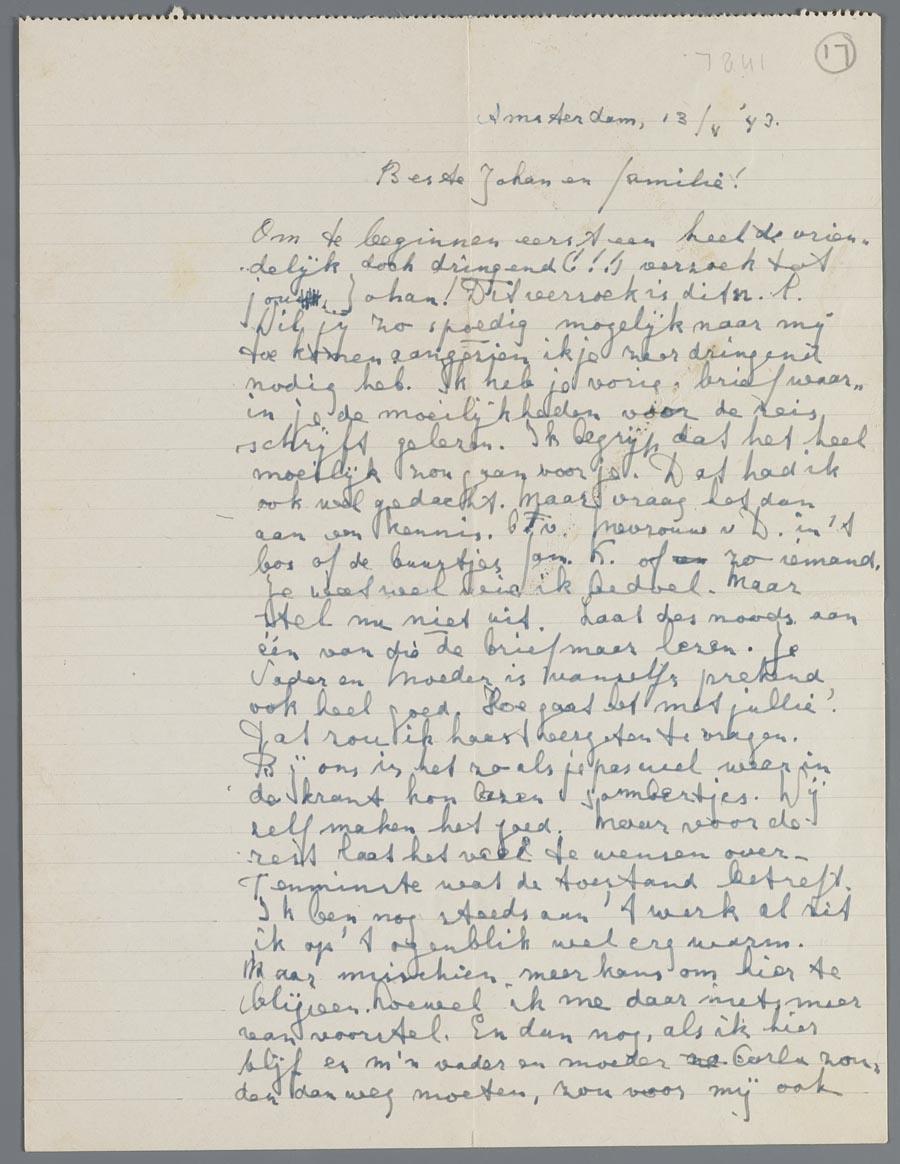 17
7841
Amsterdam, 13/4 '43.
Beste Johan en familie!
Om te beginnen eerst een heel de vrien-
delijk doch dringend (!!!) verzoek tot
jou, Johan! Dit verzoek is dit n.l.
Wil jij zo spoedig mogelijk naar mij
toe komen aangezien ik je zeer dringend
nodig heb. Ik heb je vorig. brief waar-
in je de moeilijkheden voor de reis
schrijft gelezen. Ik begrijp dat het heel
moeilijk zou gaan voor je. Dat had ik
ook wel gedacht. Maar vraag het dan
aan een kennis. b.v. Mevrouw v D. in 't
bos of de buurtjes fam. K. of zo iemand.
Je weet wel wie ik bedoel. Maar
stel nu niet uit. Laat des noods aan
één van die de brief maar lezen. Je
Vader en Moeder is vanzelfsprekend
ook heel goed. Hoe gaat het met jullie?
Dat zou ik haast vergeten te vragen.
Bij ons is het zoals je pas wel weer in
de krant kon lezen sombertjes. Wij
zelf maken het goed. Maar voor de
rest laat het veel te wensen over-
Tenminste wat de toestand betreft.
Ik ben nog steeds aan 't werk al zit
ik op 't ogenblik wel erg warm.
Maar misschien meer kans om hier te
blijven. hoewel ik me daar niet meer
van voorstel. En dan nog, als ik hier
blijf en m'n vader en moeder Carla zou-
den dan weg moeten, zou voor mij ook